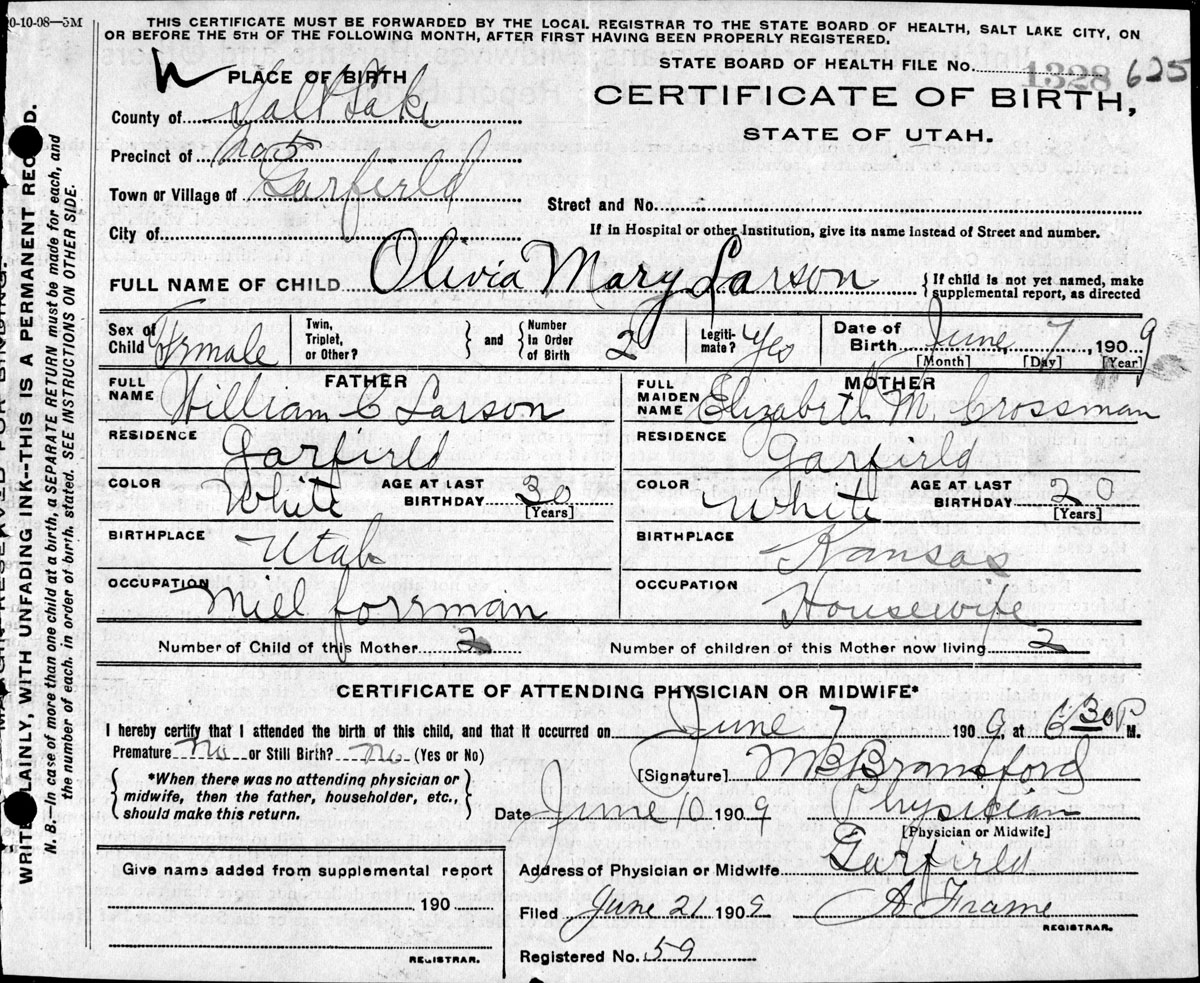 0-10-08—5M
THIS CERTIFICATE MUST BE FORWARDED BY THE LOCAL REGISTRAR TO THE STATE BOARD OF HEALTH, SALT LAKE CITY, ON
OR BEFORE THE 5TH OF THE FOLLOWING MONTH, AFTER FIRST HAVING BEEN PROPERLY REGISTERED.
STATE BOARD OF HEALTH FILE NO. 1328 625
PLACE OF BIRTH
CERTIFICATE OF BIRTH,
STATE OF UTAH.
County of Salt Lake
Precinct of No 5
Town or Village of Garfield
Street and No.
City of
If in Hospital or other Institution, give its name instead of Street and number.
FULL NAME OF CHILD Olivia Mary Larson { If child is not yet named, make
supplemental report, as directed
Sex of Child Female Twin, Triplet, or Other? } and { Number In Order of Birth 2 Legiti-mate? Yes Date of Birth June 7, 1909
[Month] [Day] [Year]
FATHER MOTHER
FULL NAME William C Larson FULL MAIDEN NAME Elizabeth M. Crossman
RESIDENCE Garfield RESIDENCE Garfield
COLOR White AGE AT LAST BIRTHDAY 30 [Years] COLOR White AGE AT LAST BIRTHDAY 20 [Years]
BIRTHPLACE Utah BIRTHPLACE Kansas
OCCUPATION Mill forman OCCUPATION Housewife
Number of Child of this Mother 2 Number of children of this Mother now living 2
CERTIFICATE OF ATTENDING PHYSICIAN OR MIDWIFE*
I hereby certify that I attended the birth of this child, and that it occurred on June 7 1909, at 6 30 P M.
Premature No or Still Birth? No (Yes or No)
[Signature] MB Bransford
{ *When there was no attending physician or
midwife, then the father, householder, etc.,
should make this return. }
Date June 10 1909 Physician
[Physician or Midwife]
Give name added from supplemental report
190
REGISTRAR.
Address of Physician or Midwife Garfield
Filed June 21 1909 A Frame
REGISTRAR.
Registered No. 59
WRITE PLAINLY, WITH UNFADING INK--THIS IS A PERMANENT RECORD.
N. B.—In case of more than one child at a birth, a SEPARATE RETURN must be made for each, and
the number of each, in order of birth, stated. SEE INSTRUCTIONS ON OTHER SIDE.